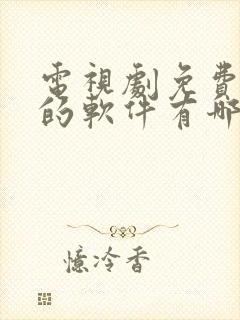 電視劇免費
的軟件有哪
憶冷香